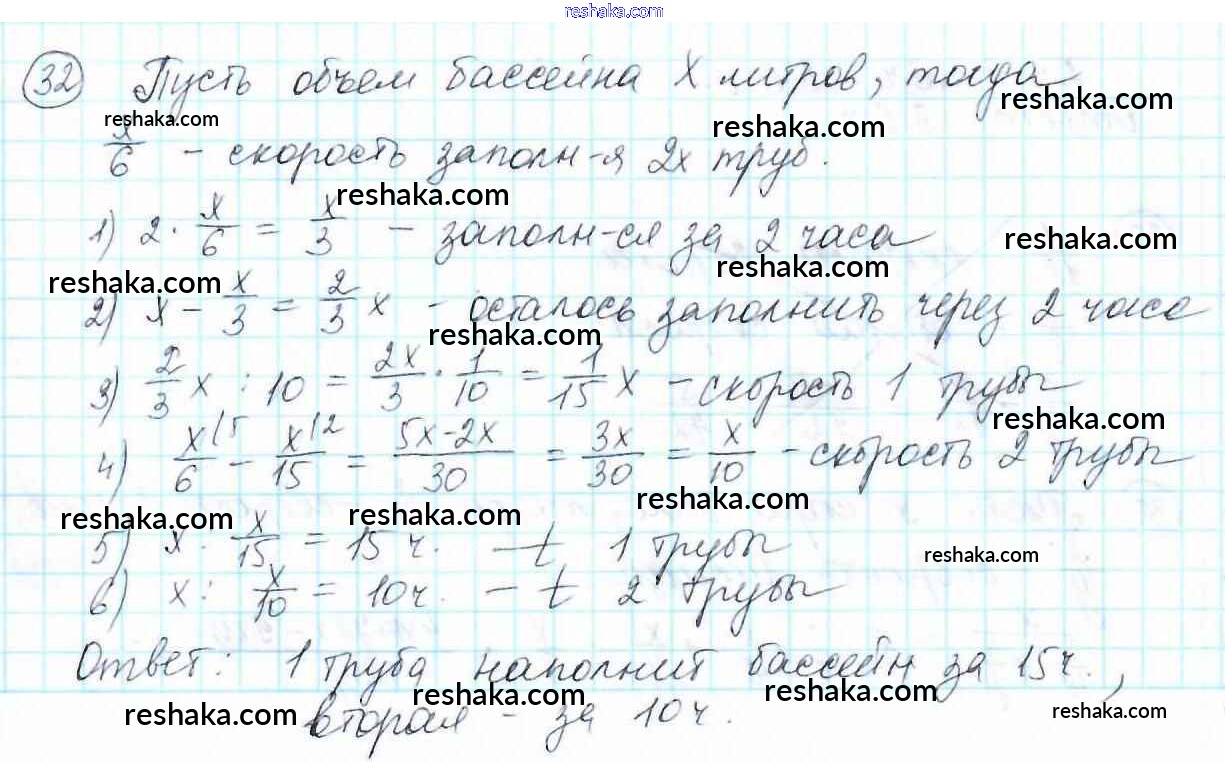 reshaka.com
32 Пусть объем бассейна X литров, тогда
reshaka.com reshaka.com reshaka.com
x/6 - скорость заполн-я 2х труб.
reshaka.com
1) 2 · x/6 = x/3 - заполн-ся за 2 часа
reshaka.com reshaka.com reshaka.com
2) x - x/3 = 2/3 x - осталось заполнить через 2 часа
reshaka.com
3) 2/3 x : 10 = 2x/3 · 1/10 = 1/15 x - скорость 1 трубы
reshaka.com
4) x/6 |5 - x/15 |2 = 5x-2x/30 = 3x/30 = x/10 - скорость 2 трубы
reshaka.com reshaka.com reshaka.com
5) x : x/15 = 15 ч. - t 1 трубы
reshaka.com
6) x : x/10 = 10ч. - t 2 трубы
Ответ: 1 труба наполнит бассейн за 15ч.,
reshaka.com reshaka.com reshaka.com reshaka.com
вторая - за 10ч.